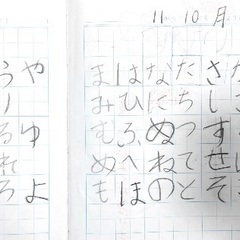 11 10 月
さしすせそ
たちつてと
なにぬねの
はひふへほ
まみむぬも
やゆよ
らりるれろ